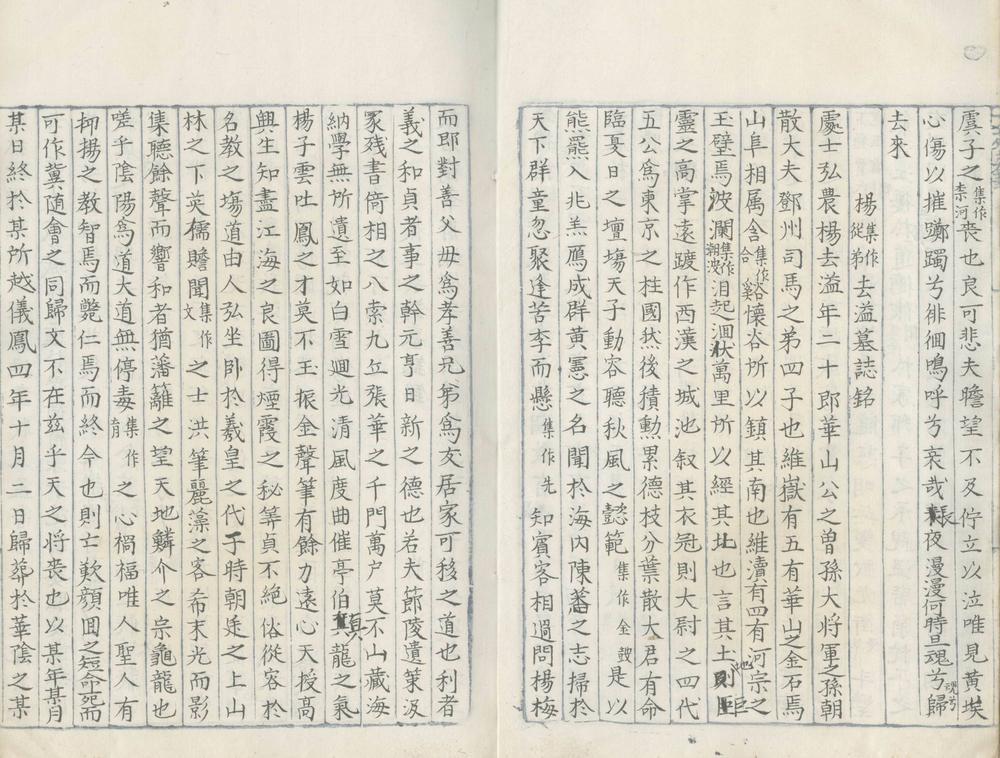 虞子之集作柰河喪也良可悲夫瞻望不及佇立以泣唯見黃埃
心傷以摧躑躅兮徘徊鳴呼兮哀哉長夜漫漫何時旦魂兮歸
去來
楊集作從弟去溢墓誌銘
處士弘農楊去溢年二十郎華山公之曾孫大將軍之孫朝
散大夫鄧州司馬之弟四子也維嶽有五有華山之金石焉
山阜相属含集作合谿集作奚懷谷所以鎮其南也維瀆有四有河宗之
玉璧焉波瀾集作潮溲泪起洄洑萬里所以經其北也言其土地則巨
靈之高掌遠蹠作西漢之城池叙其衣冠則大尉之四代
五公爲東京之柱國然後積勲累德枝分葉散大君有命
臨夏日之壇塲天子動容聽秋風之懿範集作金鼓是以
熊羆入兆羔鴈成群黃憲之名聞於海內陳蕃之志掃於
天下群童忽聚逢苦李而懸集作先知賓客相過問楊梅
而即對善父毋爲孝善兄弟爲友居家可移之道也利者
義之和貞者事之幹元亨日新之德也若夫節陵遺策汲
冢殘書倚相之八索九丘張華之千門萬户莫不山藏海
納學無所遺至如白雪廻光清風度曲催亭伯真龍之氣
楊子雲吐鳳之才莫不玉振金聲筆有餘力遠心天授高
興生知盡江海之良圖得煙霞之秘筭貞不絕俗從容於
名教之塲道由人弘坐卧於羲皇之代于時朝廷之上山
林之下英儒贍聞集作文之士洪筆麗藻之客希末光而影
集聽餘聲而響和者猶藩籬之望天地鱗介之宗龜龍也
嗟乎陰陽爲道大道無停毒集作育之心禍福唯人聖人有
抑揚之教智焉而斃仁焉而終今也則亡歎顔回之短命焉而
可作冀随會之同歸文不在兹乎天之将喪也以某年某月
某日終於某所越儀鳳四年十月二日歸葬於華陰之某